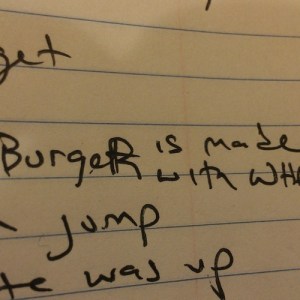 get
Burger is made
with
jump
was up